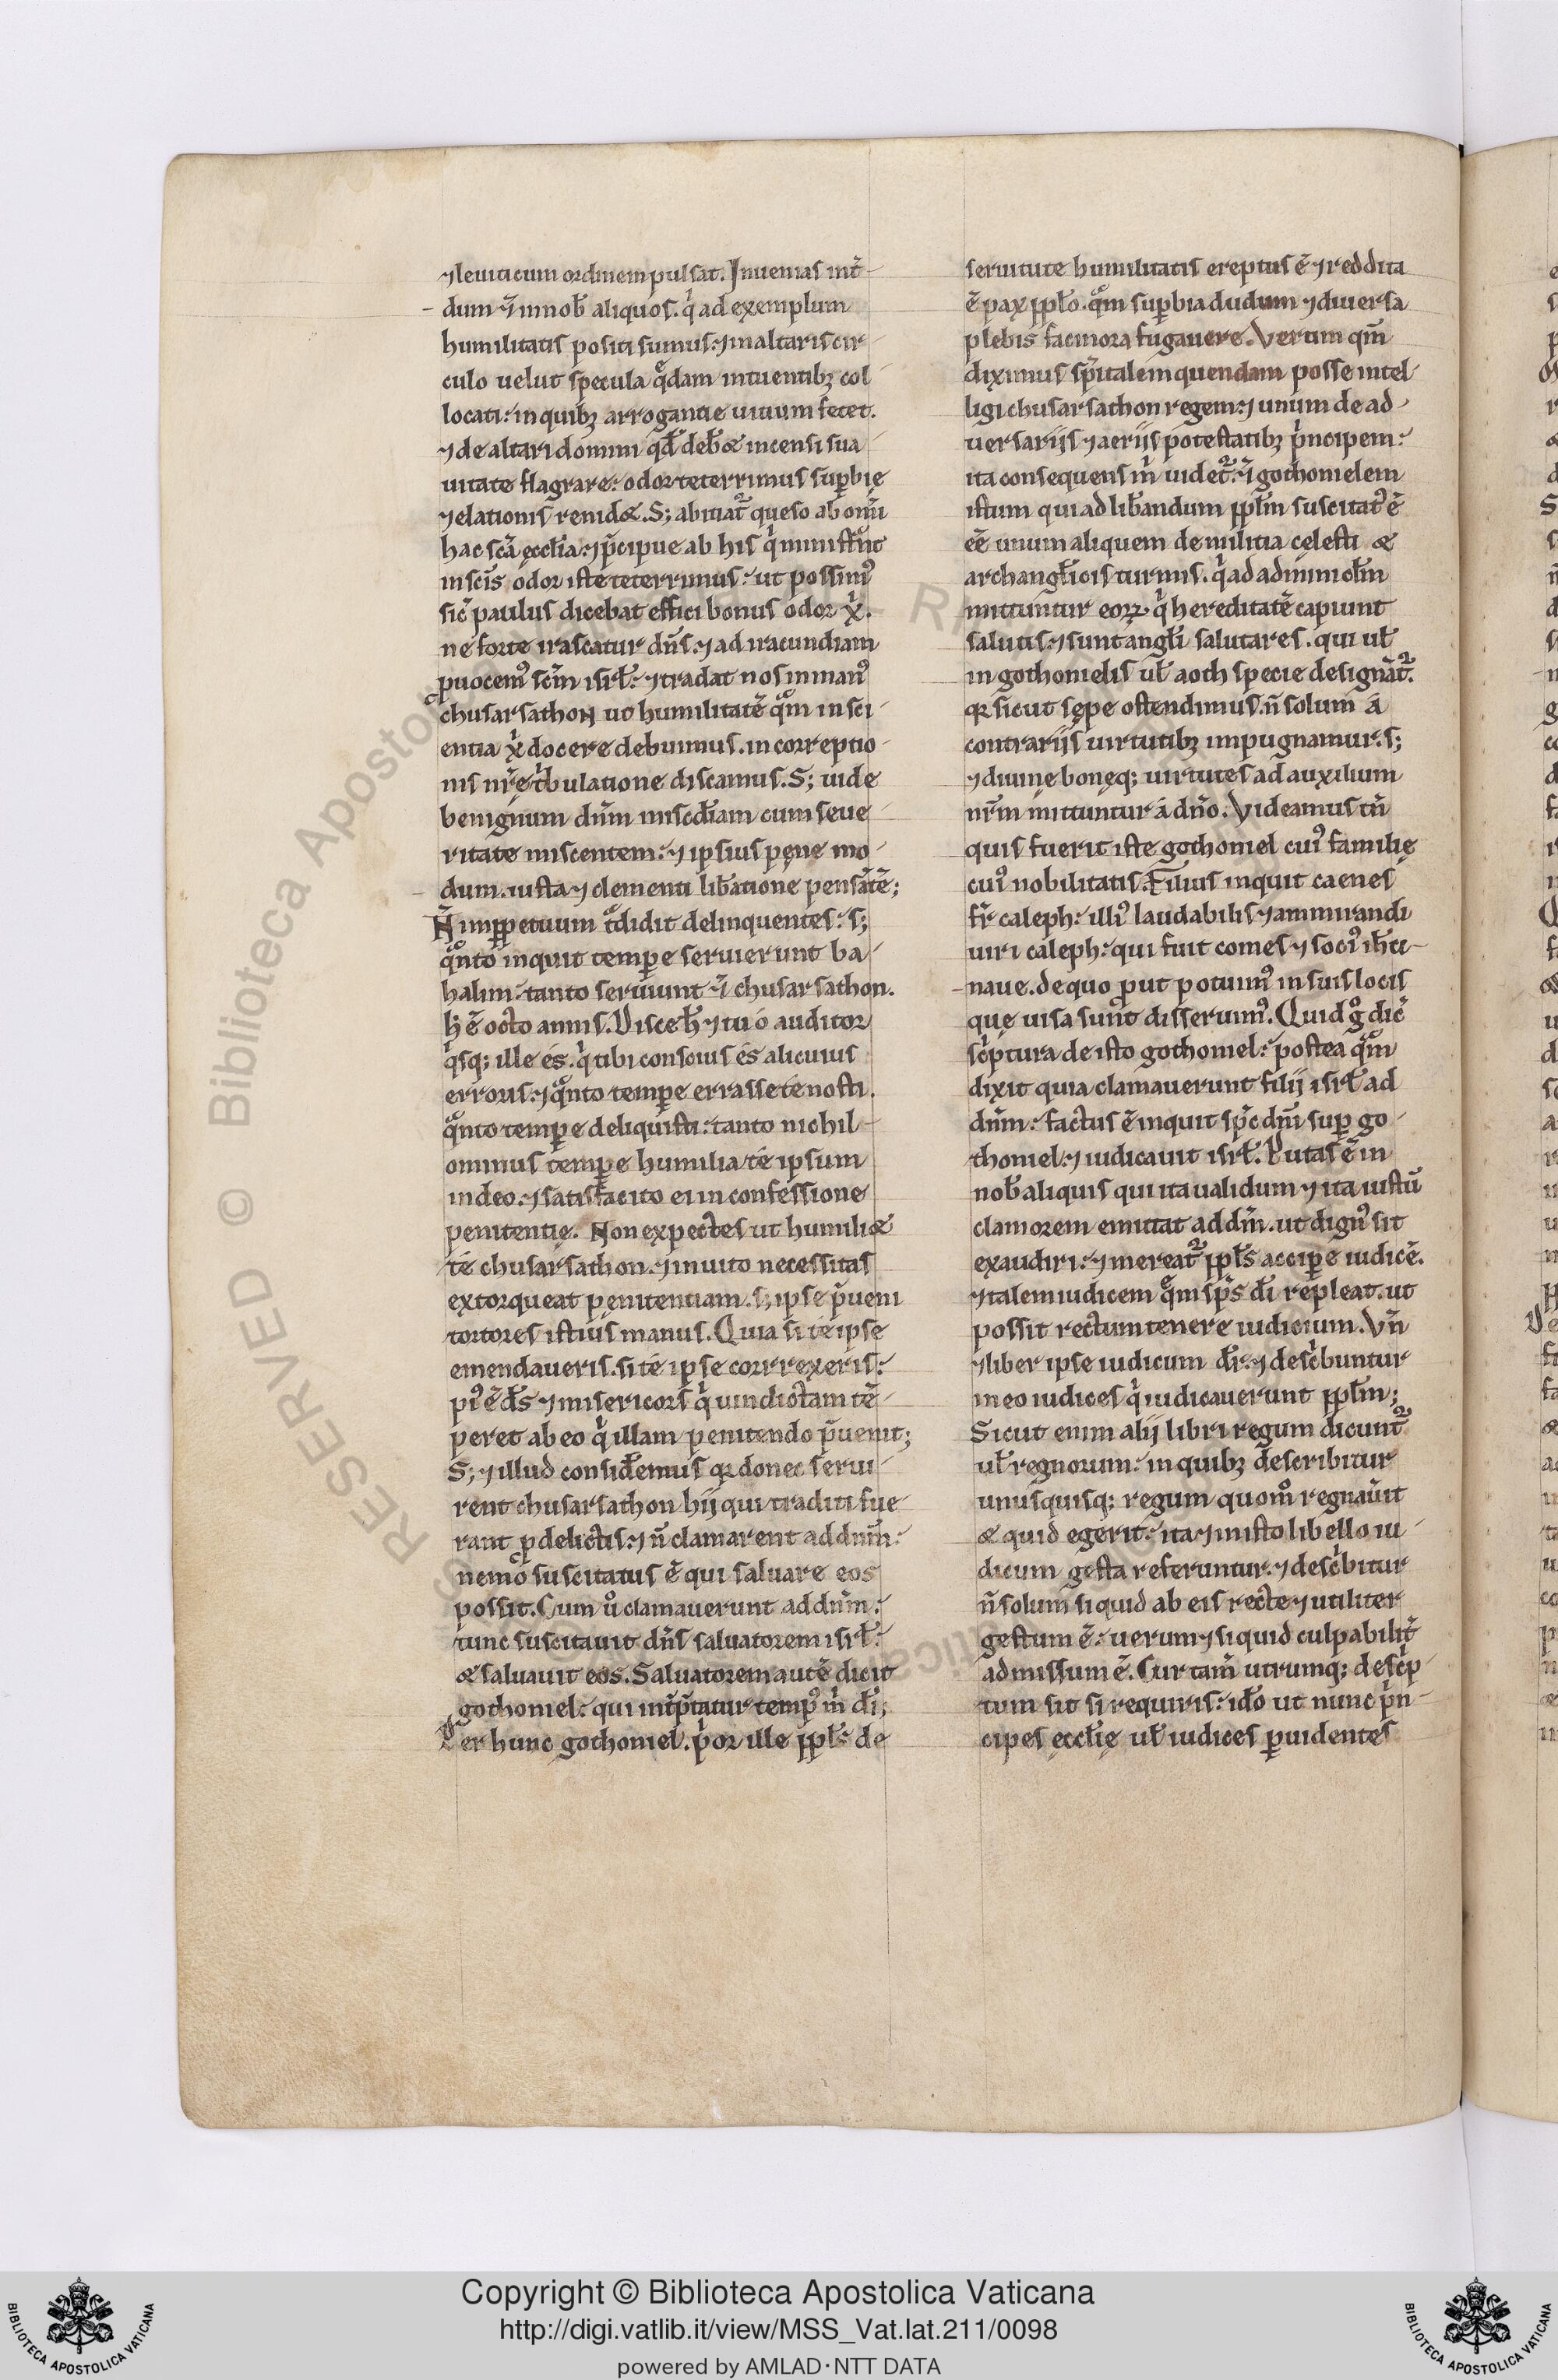 ⁊ leuiticum ordinem pulsat. Inuenias int̃
dum ⁊̃ in nob̃ aliquos. q̃ ad exemplum
humilitatis positi sumus: ⁊ in altaris cir
culo uelut specula q̃dam intuentibꝫ col
locati: in quibꝫ arrogantie uitium fetet.
⁊ de altari domini qđ deb& incensi sua
uitate flagrare: odor teterrimus supbię
⁊ elationis renid&. S; abitiat᷑ queso ab om̃i
hac scã ęcctia: ⁊ p̃cipue ab his q̃ ministr̃nt
in scĩs odor iste teterrimus: ut possim᷒
sic̃ paulus dicebat effici bonus odor xp̃i.
ne forte irascatur dñs. ⁊ ad iracundiam
ꝓuocem᷒ scm̃ isrł: ⁊ tradat nos in man᷒
chusarsathon ut humilitatẽ qm̃ in sci
entia xp̃i docere debuimus. in correptio
nis nr̃ę t̃bulatione discamus. S; uide
benignum dñm misc̃diam cum seue
ritate miscentem: ⁊ ipsius pęne mo
dum. iusta ⁊ clementi lib̃atione pensãtẽ;
Ñ in ꝑpetuum t̃didit delinquentes: s;
qñto inquit tempe seruierunt ba
halim: tanto seruiunt ⁊̃ chusarsathon.
h̃ ẽ octo annis. Disce h̃ ⁊ tu o auditor
q̃sq; ille es. q̃ tibi conscius es alicuius
erroris: ⁊ qñto tempe errasse te nosti.
qñto tempe deliquisti: tanto nichil
ominus tempe humilia te ipsum
in deo. ⁊ satisfacito ei in confessione
penitentię. Non expectes ut humili&
te chusarsathon. ⁊ inuito necessitas
extorqueat penitentiam. s; ipse p̃ueni
tortores istius manus. Quia si te ipse
emendaueris. si te ipse correxeris:
pi᷒ ẽ d̃s ⁊ misericors q̃ uindictam tẽ
peret ab eo q̃ illam penitendo p̃uenit;
S; ⁊ illud consid̃emus qꝛ donec serui
rent chusarsathon hij qui traditi fue
rant ꝓ delictis: ⁊ ñ clamarent ad dnm̃:
nemo suscitatus ẽ qui saluare eos
possit. Cum u᷒o clamauerunt ad dnm̃:
tunc suscitauit dñs saluatorem isrł:
& saluauit eos. Saluatorem autẽ dicit
gothoniel: qui int̃p̃tatur temp᷒ m̃ di᷑;
Per hunc gothoniel. p̃or ille ppłs de
seruitute humilitatis ereptus ẽ ⁊ reddita
ẽ pax ppło. qm̃ supbia dudum ⁊ diuersa
plebis facinora fugauere. Verum qm̃
diximus sp̃italem quendam posse intel
ligi chusarsathon regem: ⁊ unum de ad
uersarijs ⁊ aerijs potestatibꝫ p̃ncipem:
ita consequens m̃ uidet᷑: ⁊̃ gothonielem
istum qui ad lib̃andum ppłm suscitat᷒ ẽ
eẽ unum aliquem de militia cęlesti &
archangłicis turmis. q̃ ad adminicłm
mittuntur eoꝝ q̃ hereditatẽ capiunt
salutis: ⁊ sunt angłi salutares. qui uł
in gothonielis uł aoth specie designãt᷑.
qꝛ sicut sępe ostendimus. ñ solum a
contrarijs uirtutibꝫ impugnamur. s;
⁊ diuinę bonęq; uirtutes ad auxilium
nr̃m mittuntur a dño. Videamus tñ
quis fuerit iste gothoniel cui᷒ familię
cui᷒ nobilitatis. Filius inquit caenes
fr̃ caleph: illi᷒ laudabilis ⁊ ammirandi
uiri caleph: qui fuit comes ⁊ soci᷒ ih̃u
naue. de quo ꝓut potuim᷒ in suis locis
quę uisa sunt disseruim᷒. Quid g̊ dic̃
sc̃ptura de isto gothoniel: postea qm̃
dixit quia clamauerunt filij isrł ad
dnm̃: factus ẽ inquit sp̃c dnĩ sup go
thoniel: ⁊ iudicauit isrł. Putas ẽ in
nob̃ aliquis qui ita ualidum ⁊ ita iustũ
clamorem emittat ad dm̃. ut dign᷒ sit
exaudiri: ⁊ mereat᷑ ppłs accipe iudicẽ.
⁊ talem iudicem qm̃ sp̃s di᷑ repleat. ut
possit rectum tenere iudicium. Vñ
⁊ liber ipse iudicum dr̃: ⁊ desc̃buntur
in eo iudices q̃ iudicauerunt ppłm;
Sicut enim alij libri regum dicunt᷑
uł regnorum: in quibꝫ describitur
unusquisq; regum quom᷒ regnauit
& quid egerit: ita ⁊ in isto libello iu
dicum gesta referuntur. ⁊ desc̃bitur
ñ solum si quid ab eis recte ⁊ utiliter
gestum ẽ: uerum ⁊ si quid culpabilit̃
admissum ẽ. Cur tam̃ utrumq; desc̃p
tum sit si requiris: iđo ut nunc p̃n
cipes ęcctię uł iudices ꝑuidentes
RESERVED © Biblioteca Apostolica
Copyright © Biblioteca Apostolica Vaticana
http://digi.vatlib.it/view/MSS_Vat.lat.211/0098
powered by AMLAD·NTT DATA
BIBLIOTECA APOSTOLICA VATICANA
BIBLIOTECA APOSTOLICA VATICANA